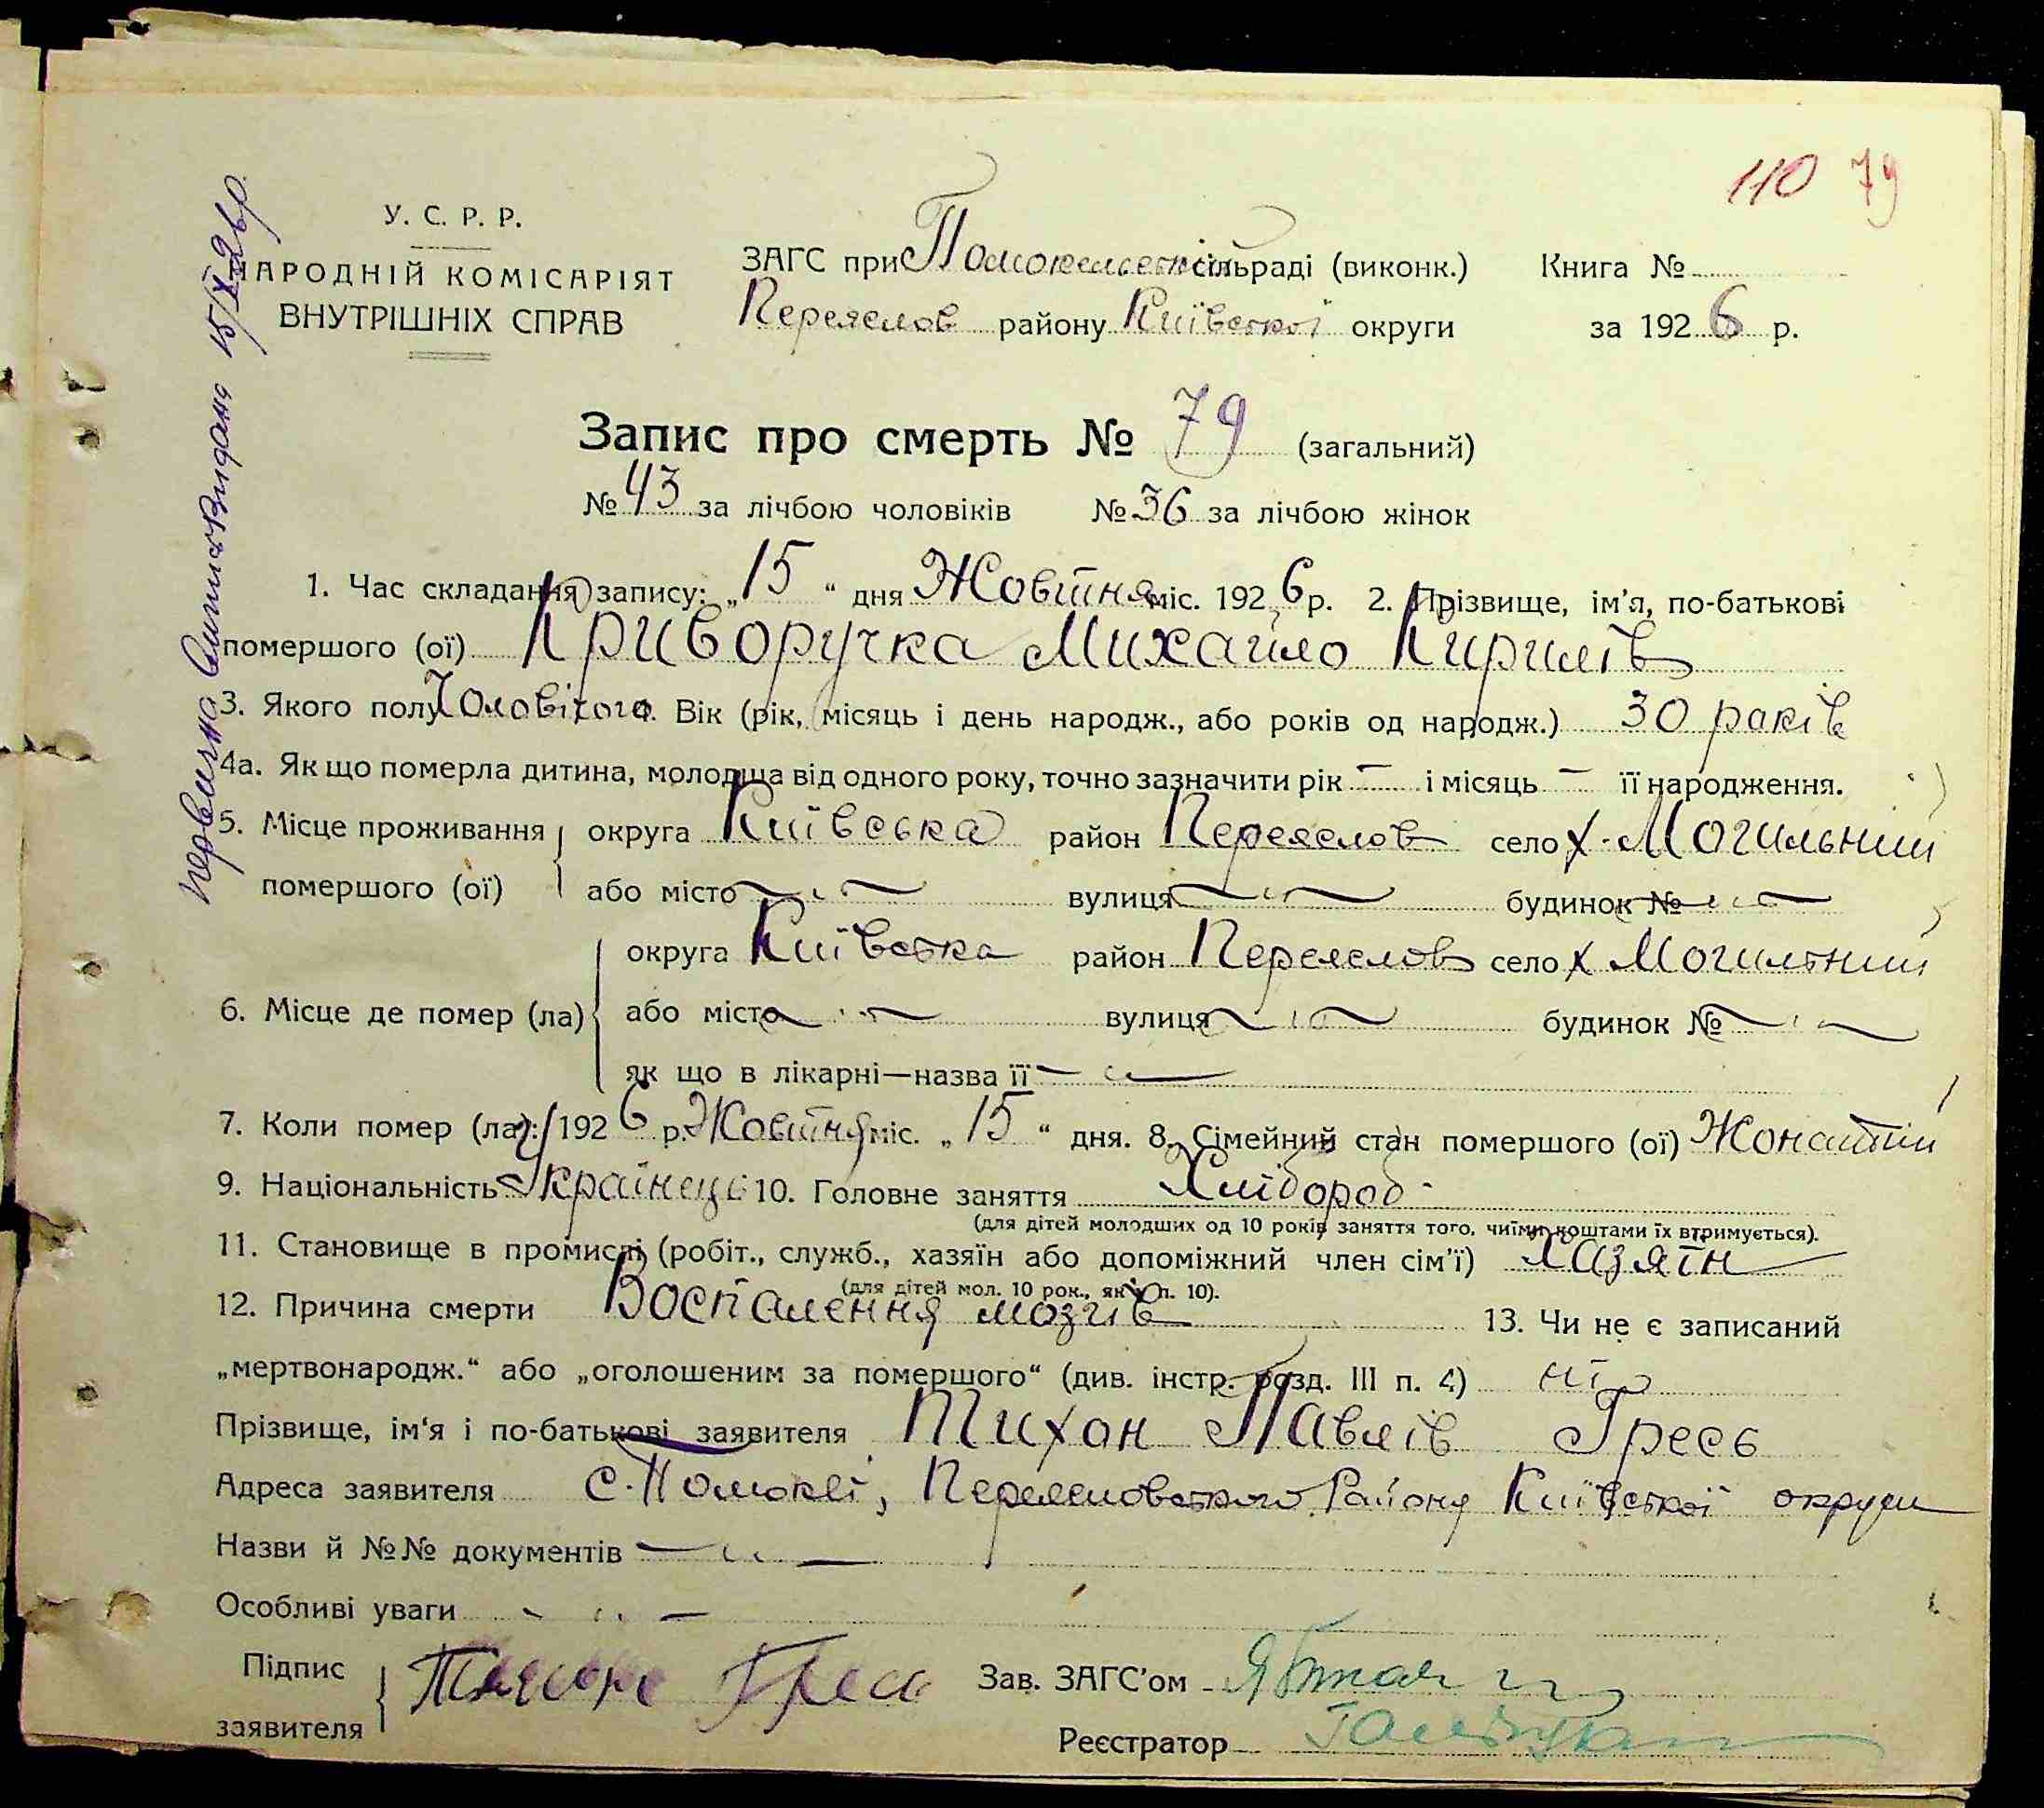 110 79
У. С. Р. Р.
НАРОДНІЙ КОМІСАРІЯТ
ВНУТРІШНІХ СПРАВ
ЗАГС при Помокельській сільраді (виконк.) Книга №
Переяслов району Київської округи за 1926 р.
Запис про смерть № 79 (загальний)
№ 43 за лічбою чоловіків № 36 за лічбою жінок
1. Час складання запису: „15“ дня Жовтня міс. 1926 р. 2. Прізвище, ім'я, по-батькові
помершого (ої) Криворучка Михайло Кирилів
3. Якого полу Чоловічого. Вік (рік, місяць і день народж., або років од народж.) 30 років
4а. Як що померла дитина, молодша від одного року, точно зазначити рік — і місяць — її народження.
5. Місце проживання округа Київська район Переяслов село х. Могильний
помершого (ої) або місто — „ — вулиця — „ — будинок № — „ —
округа Київська район Переяслов село х Могильний
6. Місце де помер (ла) або місто — „ — вулиця — „ — будинок № — „ —
як що в лікарні—назва її — „ —
7. Коли помер (ла): 1926 р. Жовтня міс. „15“ дня. 8. Сімейний стан помершого (ої) Жонатий
9. Національність Українець 10. Головне заняття Хлібороб
(для дітей молодших од 10 років заняття того, чиїми коштами їх втримується).
11. Становище в промислі (робіт., служб., хазяїн або допоміжний член сім'ї) Хазяїн
(для дітей мол. 10 рок., як у п. 10).
12. Причина смерти Воспалення мозгів 13. Чи не є записаний
„мертвонародж.“ або „оголошеним за помершого“ (див. інстр. розд. III п. 4) ні
Прізвище, ім'я і по-батькові заявителя Тихон Павлів Гресь
Адреса заявителя с. Помоклі, Переясловського Району Київської округи
Назви й №№ документів — „ —
Особливі уваги — „ —
Підпис
заявителя Гресь Зав. ЗАГС'ом
Реєстратор
Первична Видана 15/X 26 р.